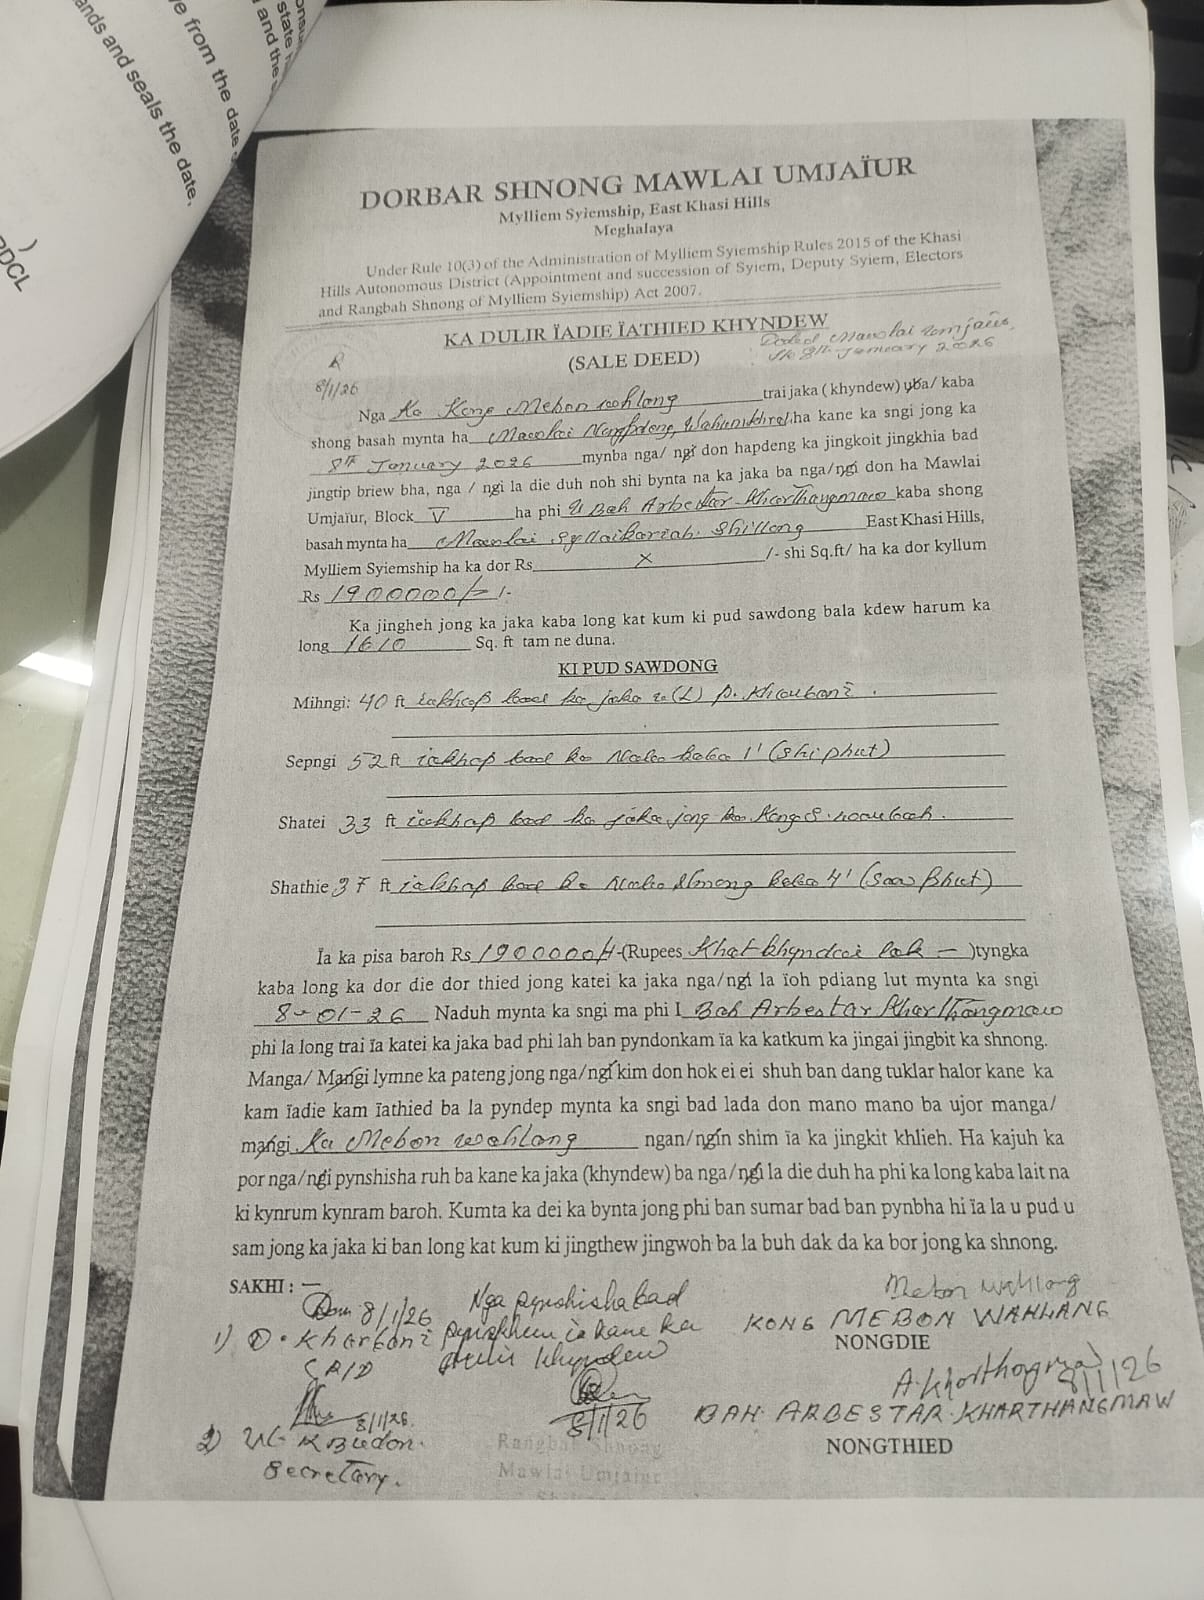 onsu
state
and the
ye from the date
ands and seals the date.
)
PDCL
DORBAR SHNONG MAWLAI UMJAÏUR
Mylliem Syiemship, East Khasi Hills
Meghalaya
Under Rule 10(3) of the Administration of Mylliem Syiemship Rules 2015 of the Khasi
Hills Autonomous District (Appointment and succession of Syiem, Deputy Syiem, Electors
and Rangbah Shnong of Mylliem Syiemship) Act 2007.
KA DULIR ÏADIE ÏATHIED KHYNDEW
Dated Mawlai Umjaiur,
8th January 2026
(SALE DEED)
8/1/26
Nga Ka Kong Mebon Wahlang trai jaka ( khyndew) uba/ kaba
shong basah mynta ha Mawlai Nongpdeng, ha kane ka sngi jong ka
8th January 2026 mynba nga/ ngi don hapdeng ka jingkoit jingkhia bad
jingtip briew bha, nga / ngi la die duh noh shi bynta na ka jaka ba nga/ngi don ha Mawlai
Umjaïur, Block V ha phi U Bah Arbestar Kharthangmaw kaba shong
basah mynta ha Mawlai Syllaikariah. Shillong East Khasi Hills,
Mylliem Syiemship ha ka dor Rs. X /- shi Sq.ft/ ha ka dor kyllum
Rs 1900000/- /-
Ka jingheh jong ka jaka kaba long kat kum ki pud sawdong bala kdew harum ka
long 1610 Sq. ft tam ne duna.
KI PUD SAWDONG
Mihngi: 40 ft ïakhap bad ka jaka u (L) P. Kharbani.
Sepngi 52 ft ïakhap bad ka Nala kaba 1' (shi phut)
Shatei 33 ft ïakhap bad ka jaka jong ka Kong S.
Shathie 37 ft ïakhap bad ka kaba 4' (saw phut)
Ïa ka pisa baroh Rs 1900000/-(Rupees Khatkhyndai lak — )tyngka
kaba long ka dor die dor thied jong katei ka jaka nga/ngi la ïoh pdiang lut mynta ka sngi
8-01-26 Naduh mynta ka sngi ma phi I Bah Arbestar Kharthangmaw
phi la long trai ïa katei ka jaka bad phi lah ban pyndonkam ïa ka katkum ka jingai jingbit ka shnong.
Manga/ Mangi lymne ka pateng jong nga/ngi kim don hok ei ei shuh ban dang tuklar halor kane ka
kam ïadie kam ïathied ba la pyndep mynta ka sngi bad lada don mano mano ba ujor manga/
mangi Ka Mebon Wahlang ngan/ngin shim ïa ka jingkit khlieh. Ha kajuh ka
por nga/ngi pynshisha ruh ba kane ka jaka (khyndew) ba nga/ngi la die duh ha phi ka long kaba lait na
ki kynrum kynram baroh. Kumta ka dei ka bynta jong phi ban sumar bad ban pynbha hi ïa la u pud u
sam jong ka jaka ki ban long kat kum ki jingthew jingwoh ba la buh dak da ka bor jong ka shnong.
SAKHI : —
8/1/26
Nga pynshisha bad
Mebon Wahlang
1) D. Kharbani
pynskhem ïa kane ka
KONG MEBON WAHLANG
NONGDIE
dulir khyndew
8/1/26
8/1/26
A. Kharthangmaw
8/1/26
BAH. ARBESTAR. KHARTHANGMAW
NONGTHIED
2)
Secretary.
Rangbah Shnong
Mawlai Umjaiur